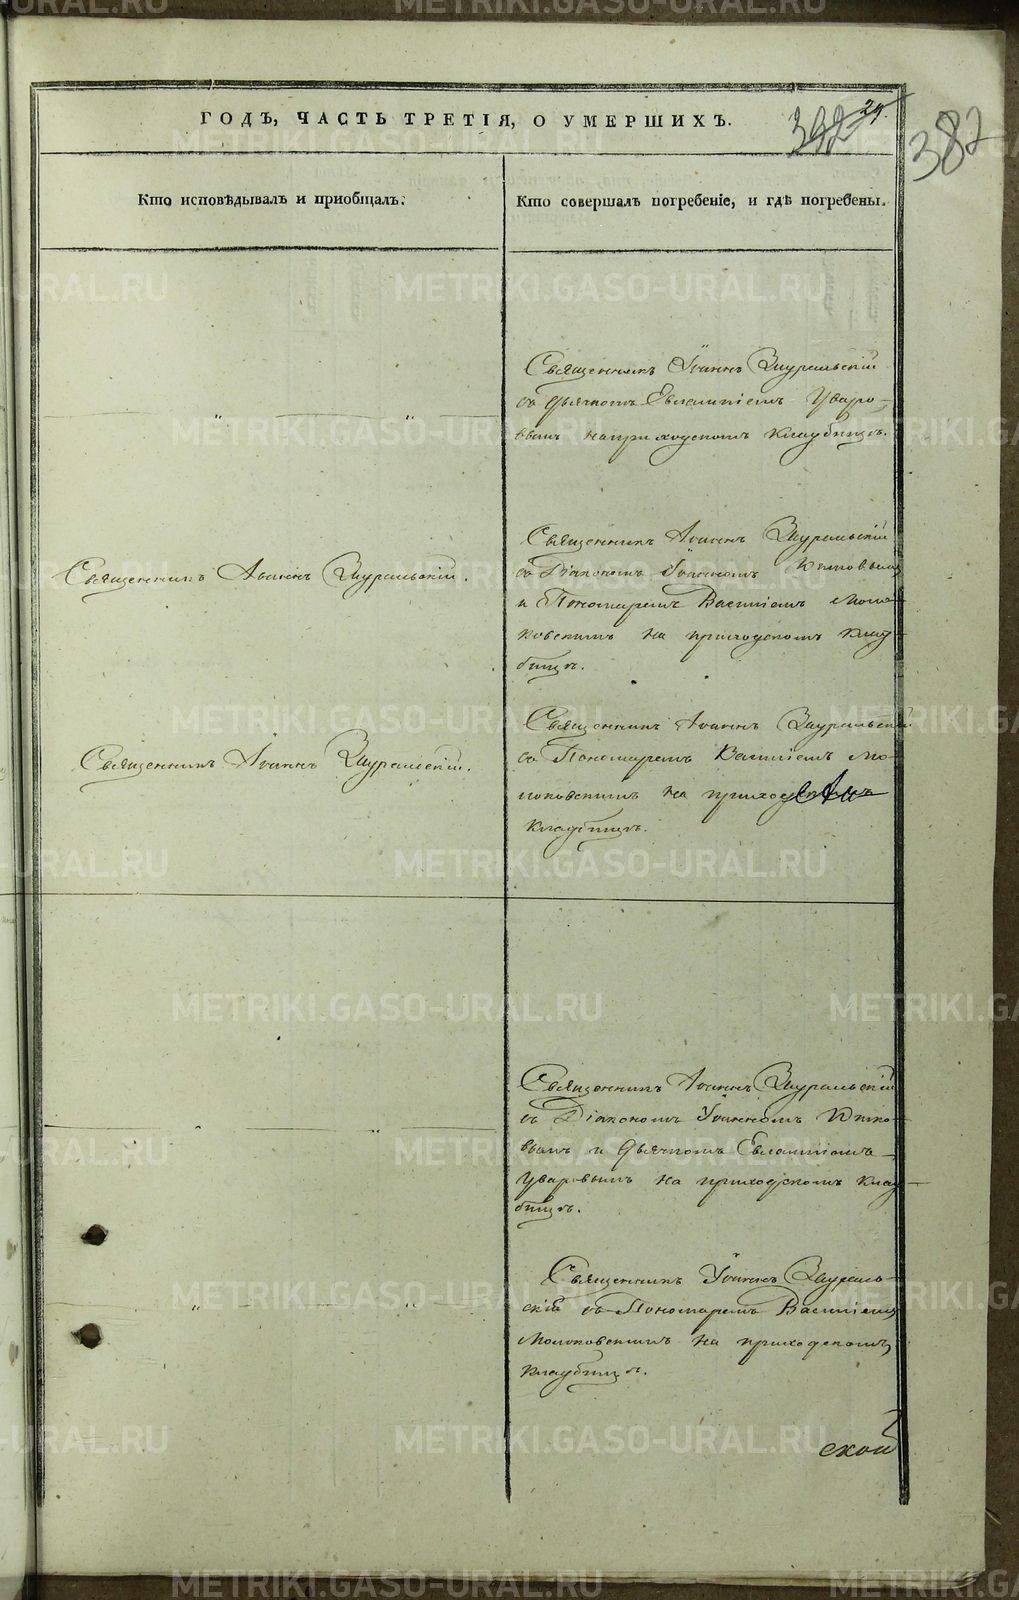 ГОДЪ, ЧАСТЬ ТРЕТІЯ, О УМЕРШИХЪ.
29.
392
387
Кто исповѣдывалъ и приобщалъ.
Кто совершалъ погребеніе, и гдѣ погребены.
Священникъ Іоаннъ Зауральскій
съ Дьячкомъ Евлампіемъ Уваро-
вымъ на приходскомъ кладбищѣ.
Священникъ Іоаннъ Зауральскій.
Священникъ Іоаннъ Зауральскій
съ Діакономъ Іоанномъ
и Пономаремъ Василіемъ Моло-
ковскимъ на приходскомъ клад-
бищѣ.
Священникъ Іоаннъ Зауральскій.
Священникъ Іоаннъ Зауральскій
съ Пономаремъ Василіемъ Мо-
локовскимъ на приходскомъ
кладбищѣ.
Священникъ Іоаннъ Зауральскій
съ Діакономъ Іоанномъ
вымъ и Дьячкомъ Евлампіемъ
Уваровымъ на приходскомъ клад-
бищѣ.
Священникъ Іоаннъ Заураль-
скій съ Пономаремъ Василіемъ
Молоковскимъ на приходскомъ
кладбищѣ.
ской
METRIKI.GASO-URAL.RU